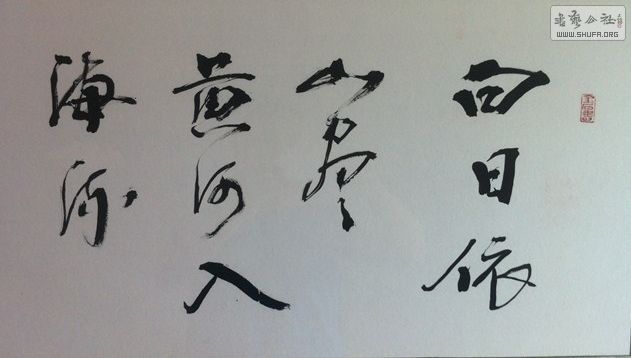 白日依
山尽
黄河入
海流
書藝公社
WWW.SHUFA.ORG